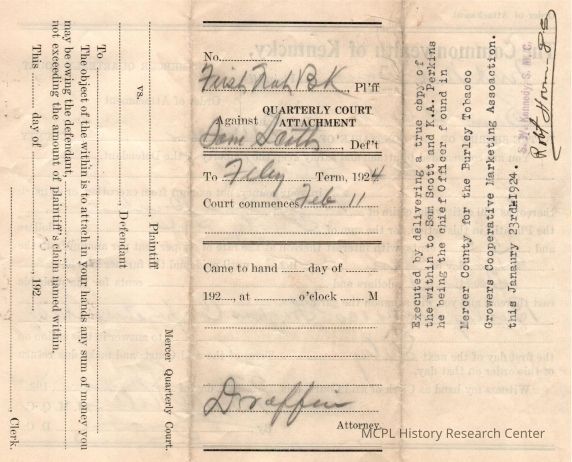 To
The object of the within is to attach in your hands any sum of money you
may be owing the defendant,
not exceeding the amount of plaintiff's claim named within.
This day of 192
Clerk.
Mercer Quarterly Court.
Plaintiff
vs.
Defendant
No.
First Natl BK Pl'ff
Against
QUARTERLY COURT
ATTACHMENT
Sam Scott, Def't
To Feby Term, 1924
Court commences Feb 11
Came to hand day of
192, at, o'clock M
Draffin
Attorney
Executed by delivering a true copy of
the within to Som Scott and K.A. Perkins
he being the chief Officer found in
Mercer County for the Burley Tobacco
Growers Cooperative Marketing Assoaction.
this Janaury 23rd 1924.
S. M. Kennedy, S. M. C.
MCPL History Research Center